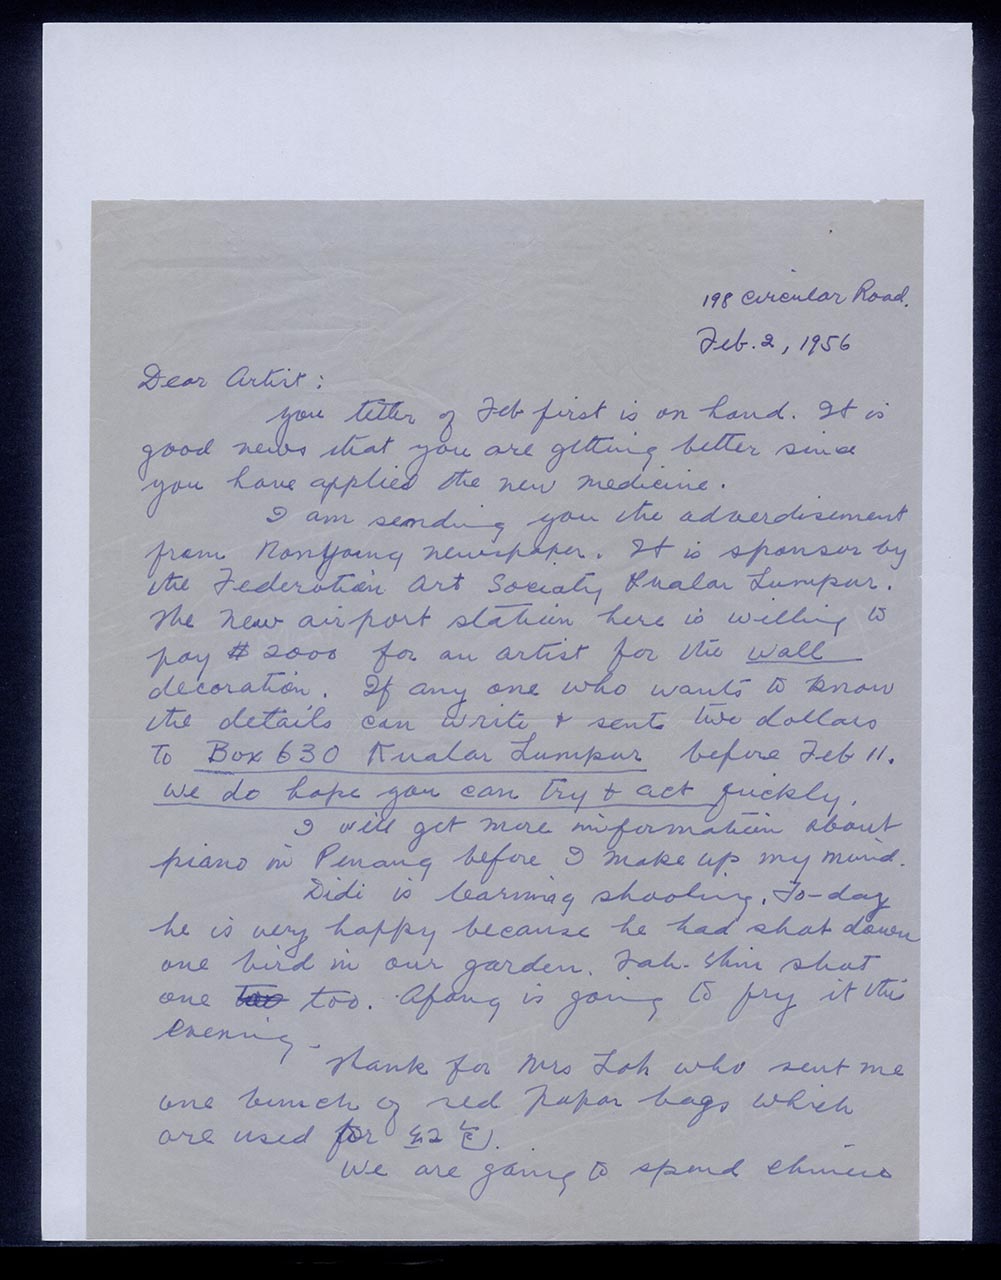 198 Circular Road.
Feb. 2, 1956
Dear Artist:
you letter of Feb first is on hand. It is
good news that you are getting better since
you have applied the new medicine.
I am sending you the adverdisement
from NanYang newspaper. It is sponsor by
the Federation Art Society Kualar Lumpur.
The new airport station here is willing to
pay $ 2000 for an artist for the wall
decoration. If any one who wants to know
the details can write & sent two dollars
to Box 630 Kualar Lumpur before Feb 11.
we do hope you can try & act quickly.
I will get more information about
piano in Penang before I make up my mind.
Didi is learning shooting. To-day
he is very happy because he had shot down
one bird in our garden. Fah-Shin shot
one too too. Afong is going to fry it this
evening.
Thank for Mrs Loh who sent me
one bunch of red papar bags which
are used for 红包).
We are going to spend chinese